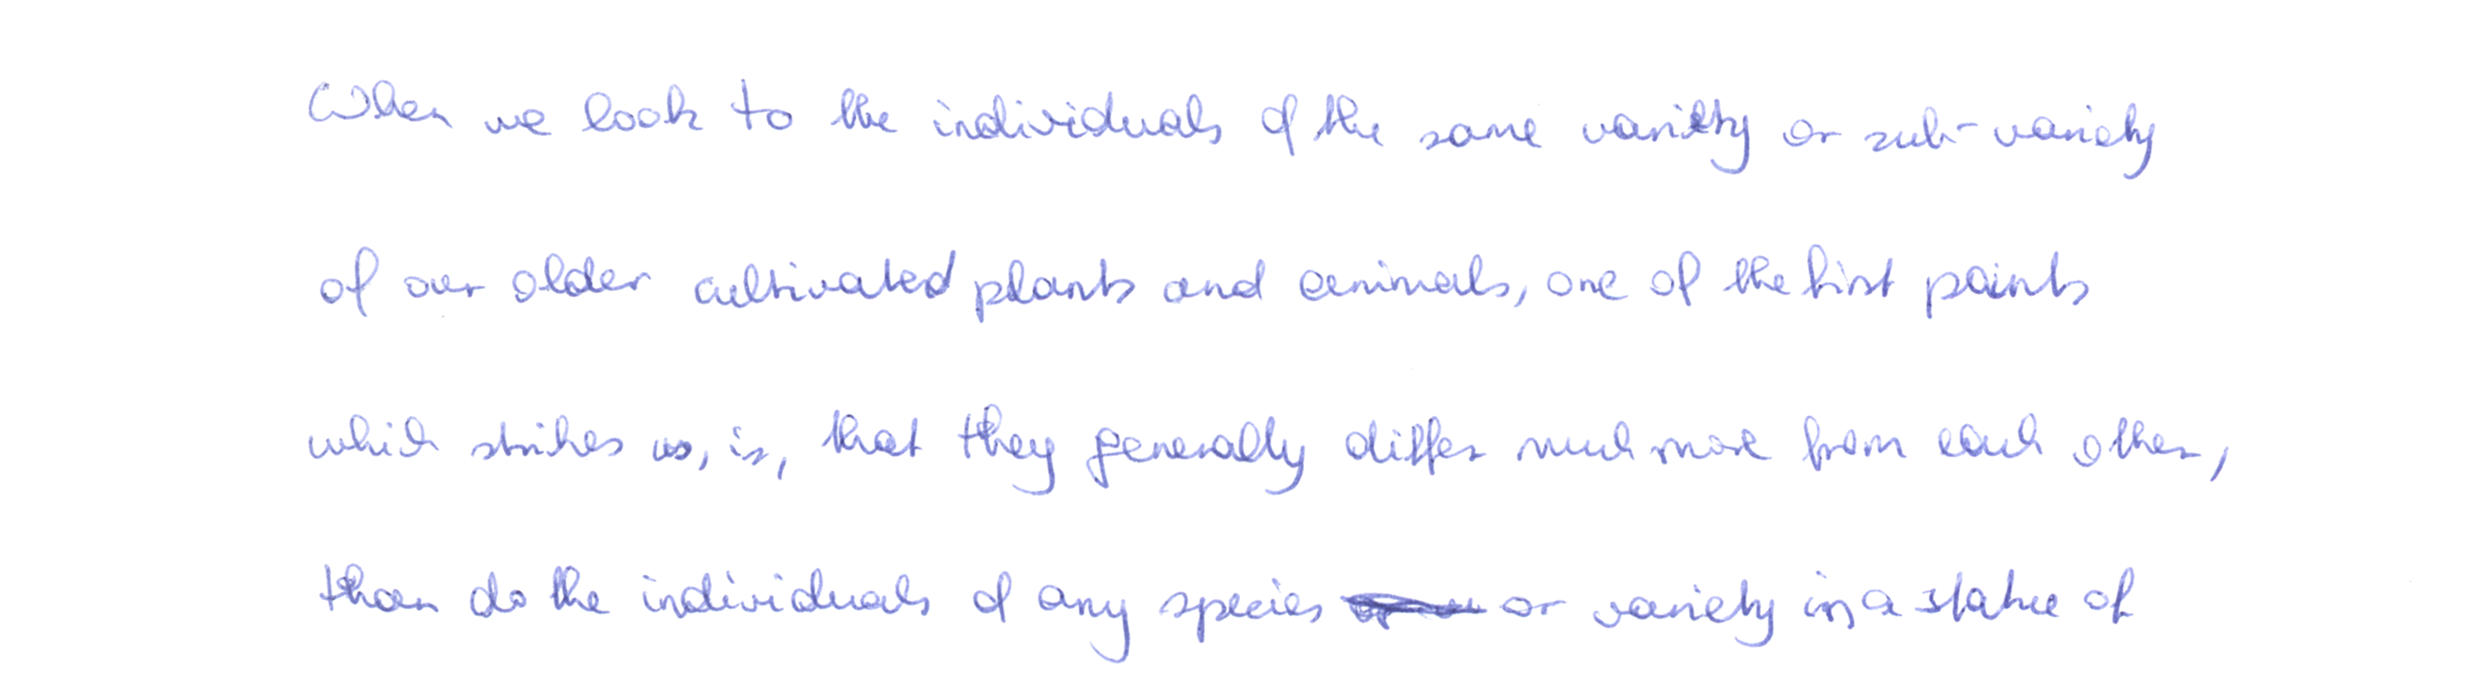 When we look to the individuals of the same variety or sub-variety
of our older cultivated plants and animals, one of the first points
which strikes us, is, that they generally differ much more from each other,
than do the individuals of any species or variety in a statue of